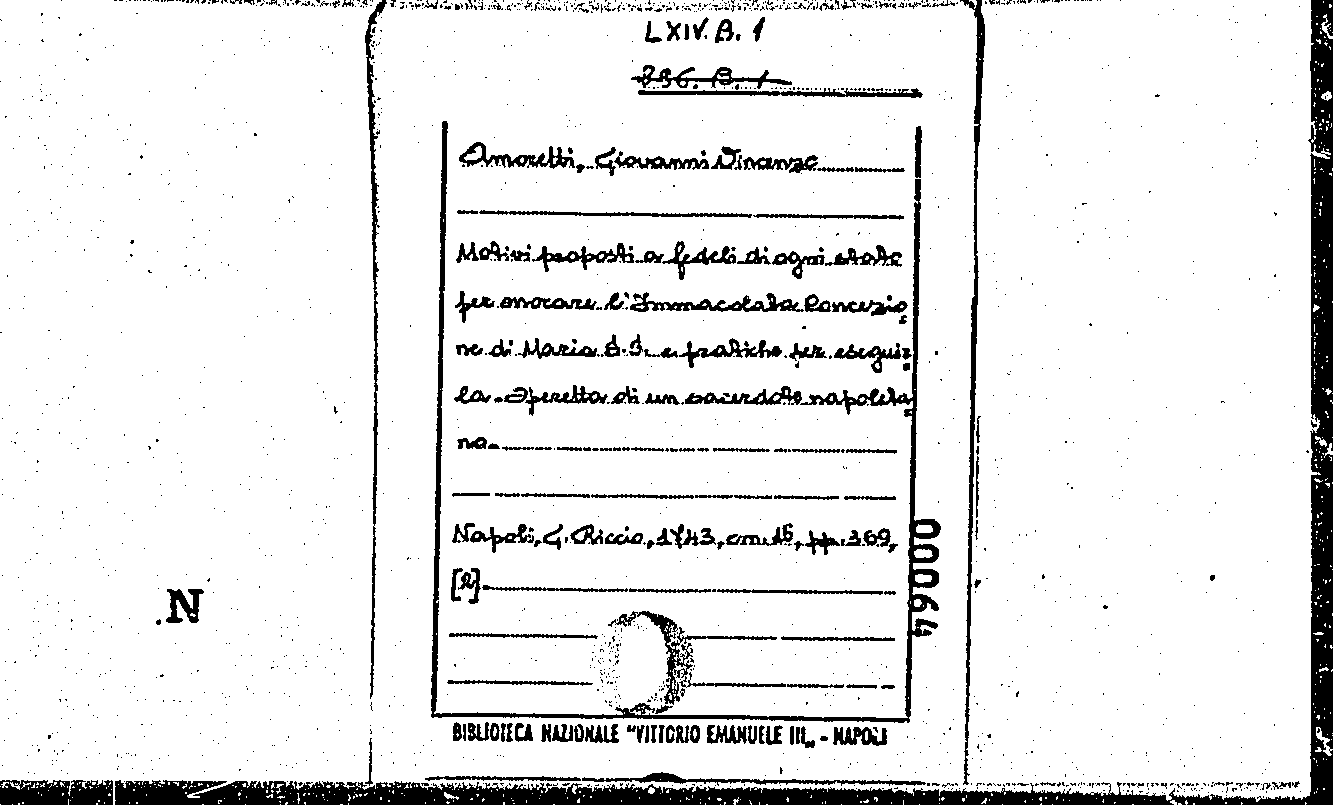 LXIV. B. 1
336. B. 1
Amoretti, Giovanni Vincenzo
Motivi proposti a fedeli di ogni stato
per onorare l'Immacolata Concezio=
ne di Maria S.S. e pratiche per eseguir=
la. Operetta di un sacerdote napoleta=
no.
Napoli, G. Riccio, 1743, cm. 16, pp. 369,
[2].
00064
.N
BIBLIOTECA NAZIONALE "VITTORIO EMANUELE III„ - NAPOLI